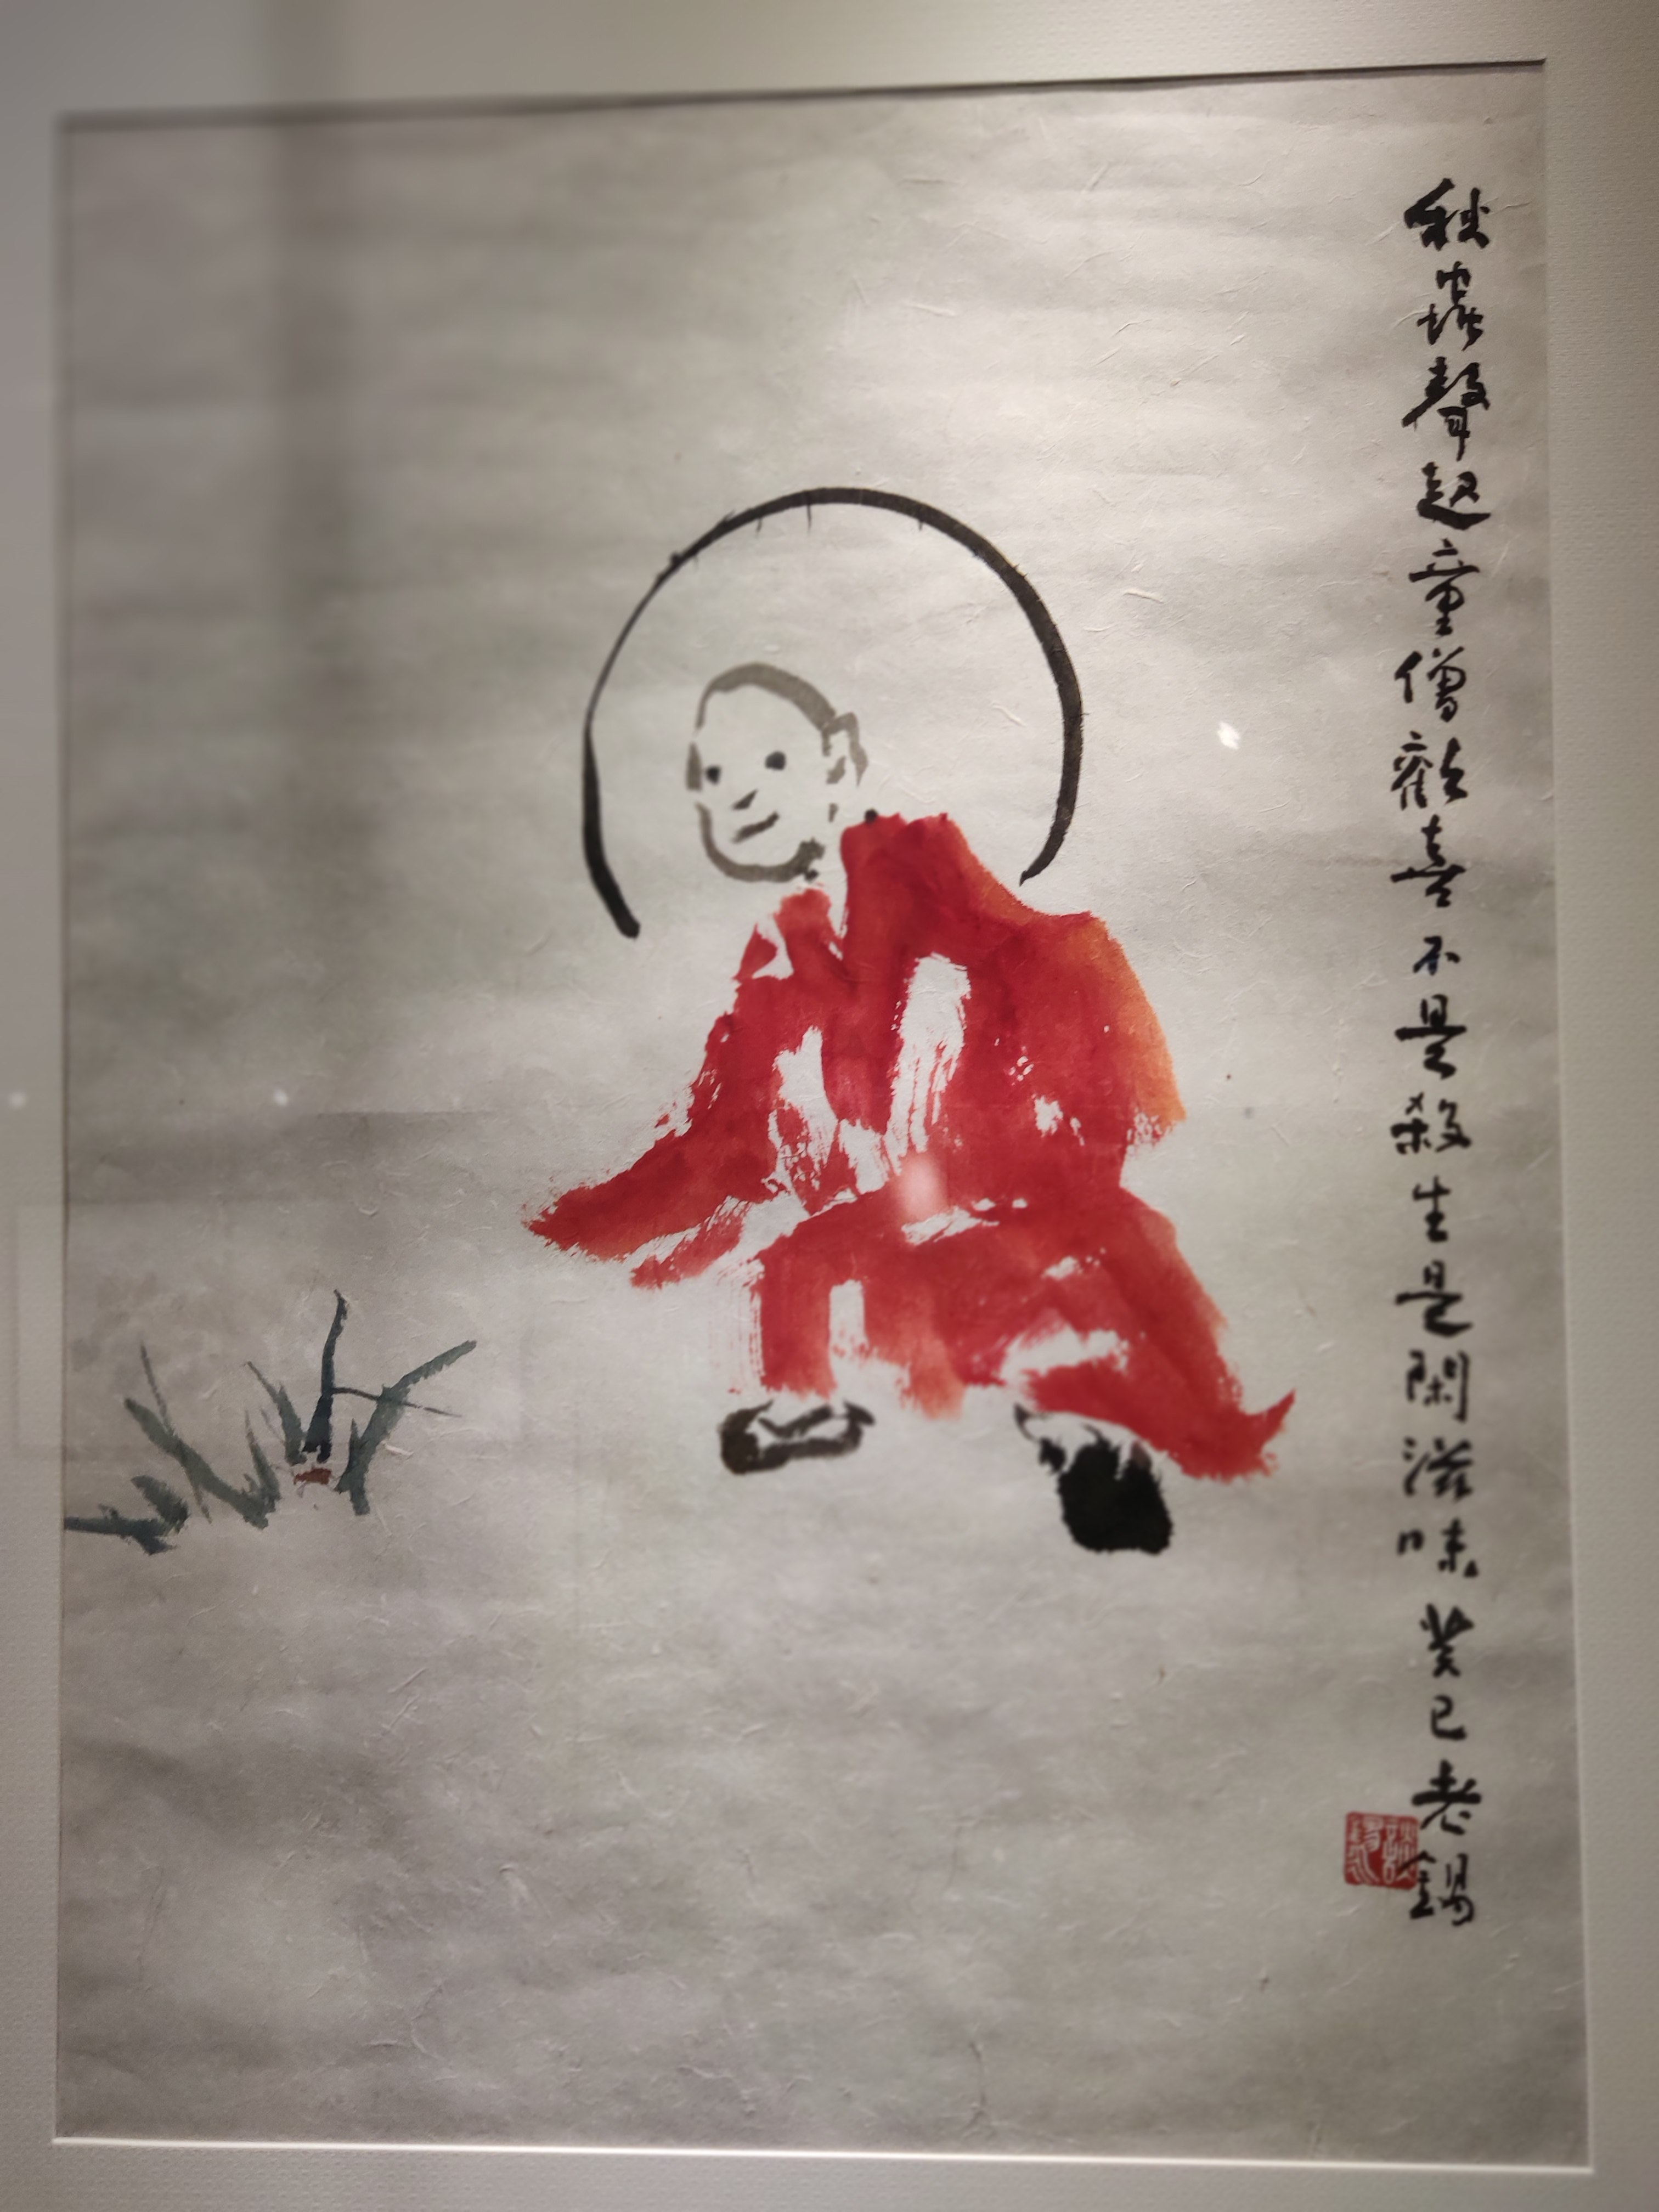 秋蟲聲起童僧歡喜不是殺生是閑滋味癸巳老錫